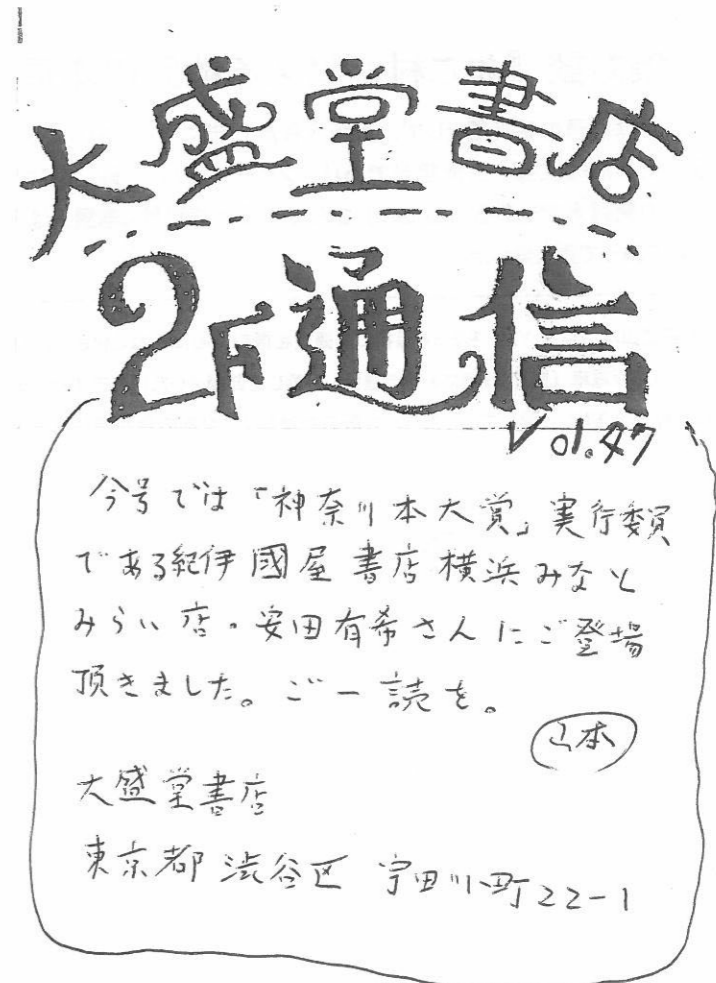 大盛堂書店
2F通信
Vol.47
今号では「神奈川本大賞」実行委員
である紀伊國屋書店横浜みなと
みらい店・安田有希さんにご登場
頂きました。ご一読を。
山本
大盛堂書店
東京都渋谷区宇田川町22-1